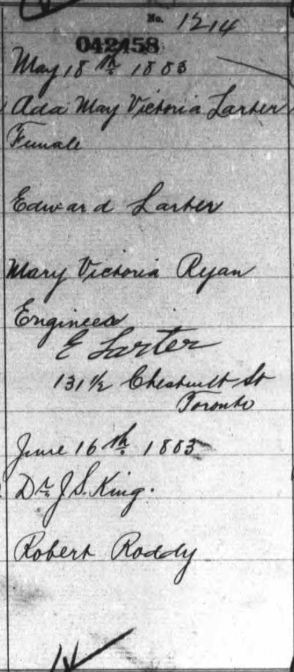 No. 1214
042458
May 18th 1883
Ada May Victoria Larter
Female
Edward Larter
Mary Victoria Ryan
Engineer
E Larter
131½ Chestnutt St
Toronto
June 16th 1883
Dr. J.S. King.
Robert Roddy